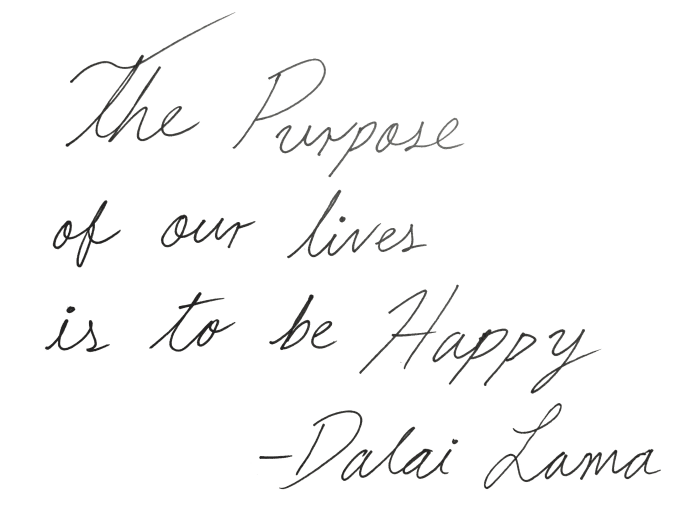 The Purpose
of our lives
is to be Happy
-Dalai Lama